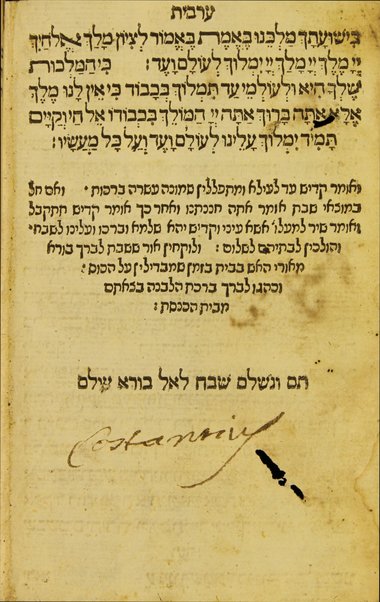 ערבית
בישועתך מלכנו באמת באמור לציון מלך אלהיך
יי מלך יי מלך יי ימלוך לעולם ועד : כי המלכות
שלך היא ולעולמי עד תמלוך בכבוד כי אין לנו מלך
אלא אתה ברוך אתה יי המולך בכבודו אל חי וקיים
תמיד ימלוך עלינו לעולם ועד ועל כל מעשיו :
ואומר קדיש עד לעילא ומתפללין שמונה עשרה ברכות ׃ ואם חל
במוצאי שבת אומר אתה חוננתנו ואחר כך אומר קדיש תתקבל
ואומר שיר למעלו׳ אשא עיני וקדיש יהא שלמא וברכו ועלינו לשבח ׃
והולכין לבתיהם לשלום ׃ ולוקחין אור ששבת לברך בורא
מאורי האש בבית בזמן שמבדילין על הכוס ׃
ונהגו לברך ברכת הלבנה בצאתם
מבית הכנסת :
תם ונשלם שבח לאל בורא עולם